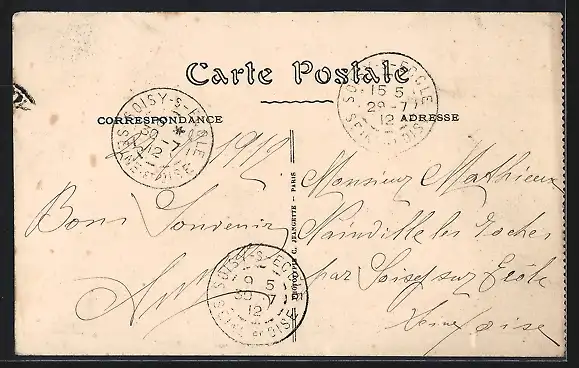 Carte Postale
CORRESPONDANCE
ADRESSE
SOISY-S-ECOLE
15 5
29-7
12
SEINE ET OISE
SOISY-S-ECOLE
*
30-7
12
SEINE ET OISE
1912
Bons Souvenirs
Monsieur Mathieux
Nainville les Roches
par Soisy sur Ecole
Seine Oise
SOISY-S-ECOLE
9 5
30-7
12
SEINE ET OISE
C. JEANGETTE - PARIS